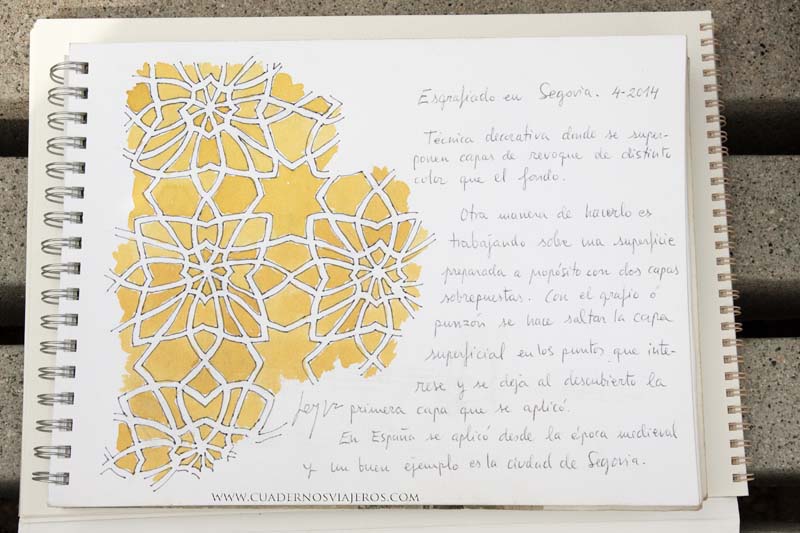 Esgrafiado en Segovia. 4-2014
Técnica decorativa donde se super-
ponen capas de revoque de distinto
color que el fondo.
Otra manera de hacerlo es
trabajando sobre una superficie
preparada a propósito con dos capas
sobrepuestas. Con el grafio ó
punzón se hace saltar la capa
superficial en los puntos que inte-
rese y se deja al descubierto la
primera capa que se aplicó.
En España se aplicó desde la época medieval
y un buen ejemplo es la ciudad de Segovia.
WWW.CUADERNOSVIAJEROS.COM